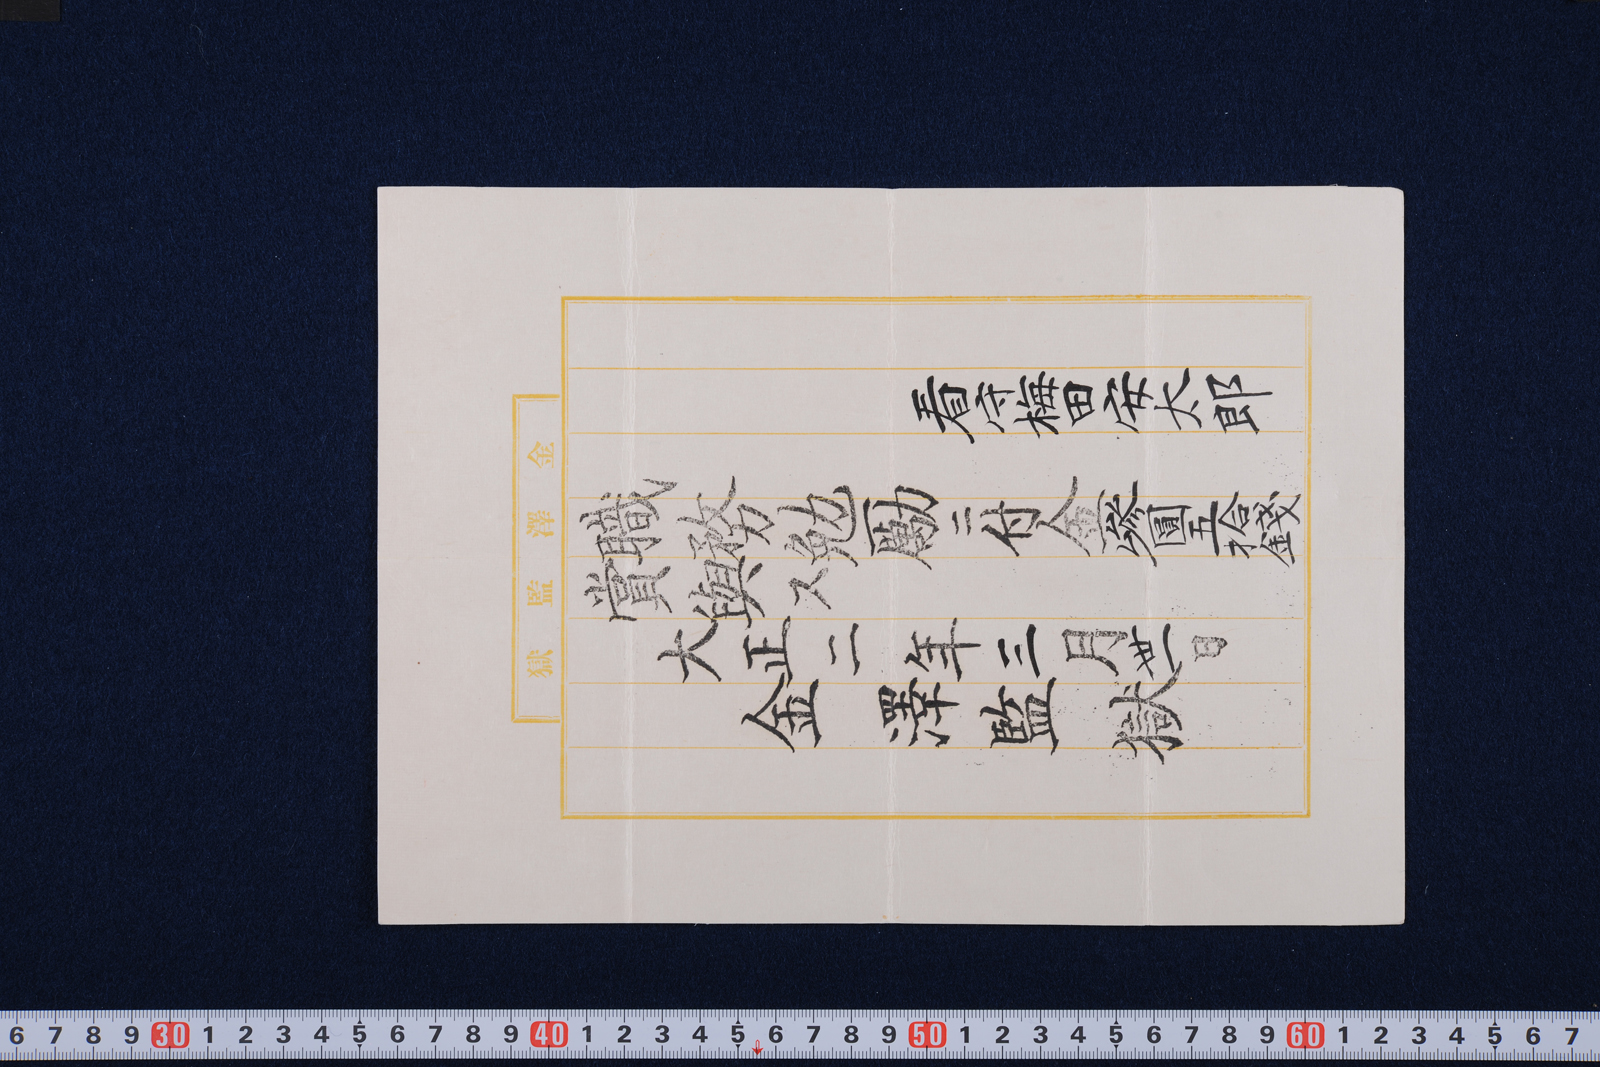 看守梅田安太郎
職務勉勵ニ付金參圓五拾錢
賞與ス
大正二年三月卅一日
金澤監獄
金澤監獄
6 7 8 9 30 1 2 3 4 5 6 7 8 9 40 1 2 3 4 5 6 7 8 9 50 1 2 3 4 5 6 7 8 9 60 1 2 3 4 5 6 7